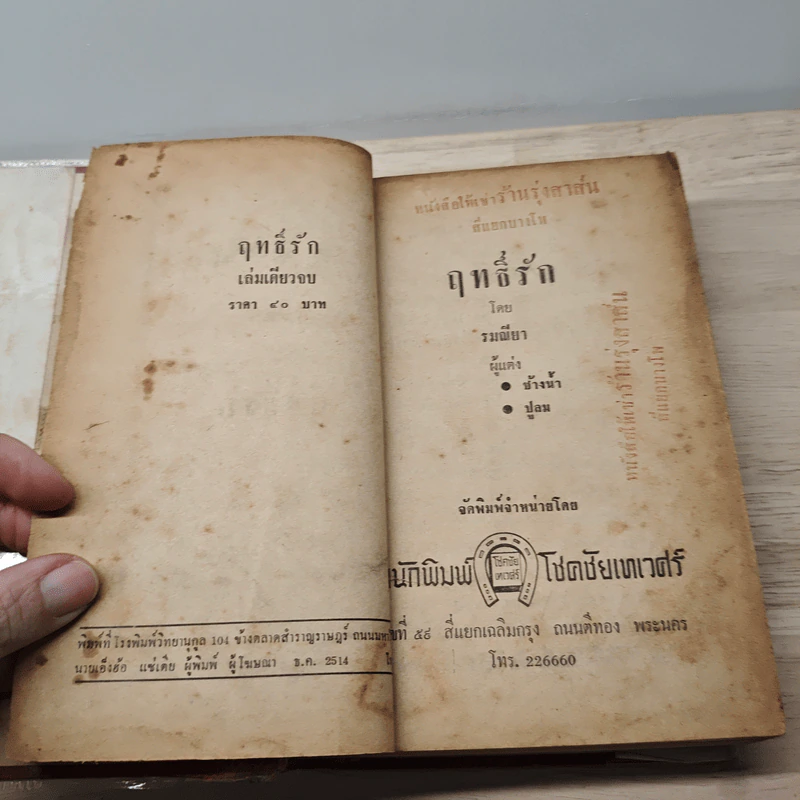 ฤทธิ์รัก
เล่มเดียวจบ
ราคา ๔๐ บาท
พิมพ์ที่โรงพิมพ์วิทยานุกูล 104 ข้างตลาดสำราญราษฎร์ ถนนมหา
นายเอ็งฮ้อ แซ่เตีย ผู้พิมพ์ ผู้โฆษณา ธ.ค. 2514
หนังสือให้เช่าร้านรุ่งสาส์น
สี่แยกบางโพ
ฤทธิ์รัก
โดย
รมณียา
ผู้แต่ง
● ช้างน้ำ
● ปูลม
หนังสือให้เช่าร้านรุ่งสาส์น
สี่แยกบางโพ
จัดพิมพ์จำหน่ายโดย
นักพิมพ์ โชคชัยเทเวศร์ โชคชัยเทเวศร์
ที่ ๕๙ สี่แยกเฉลิมกรุง ถนนตีทอง พระนคร
โทร. 226660